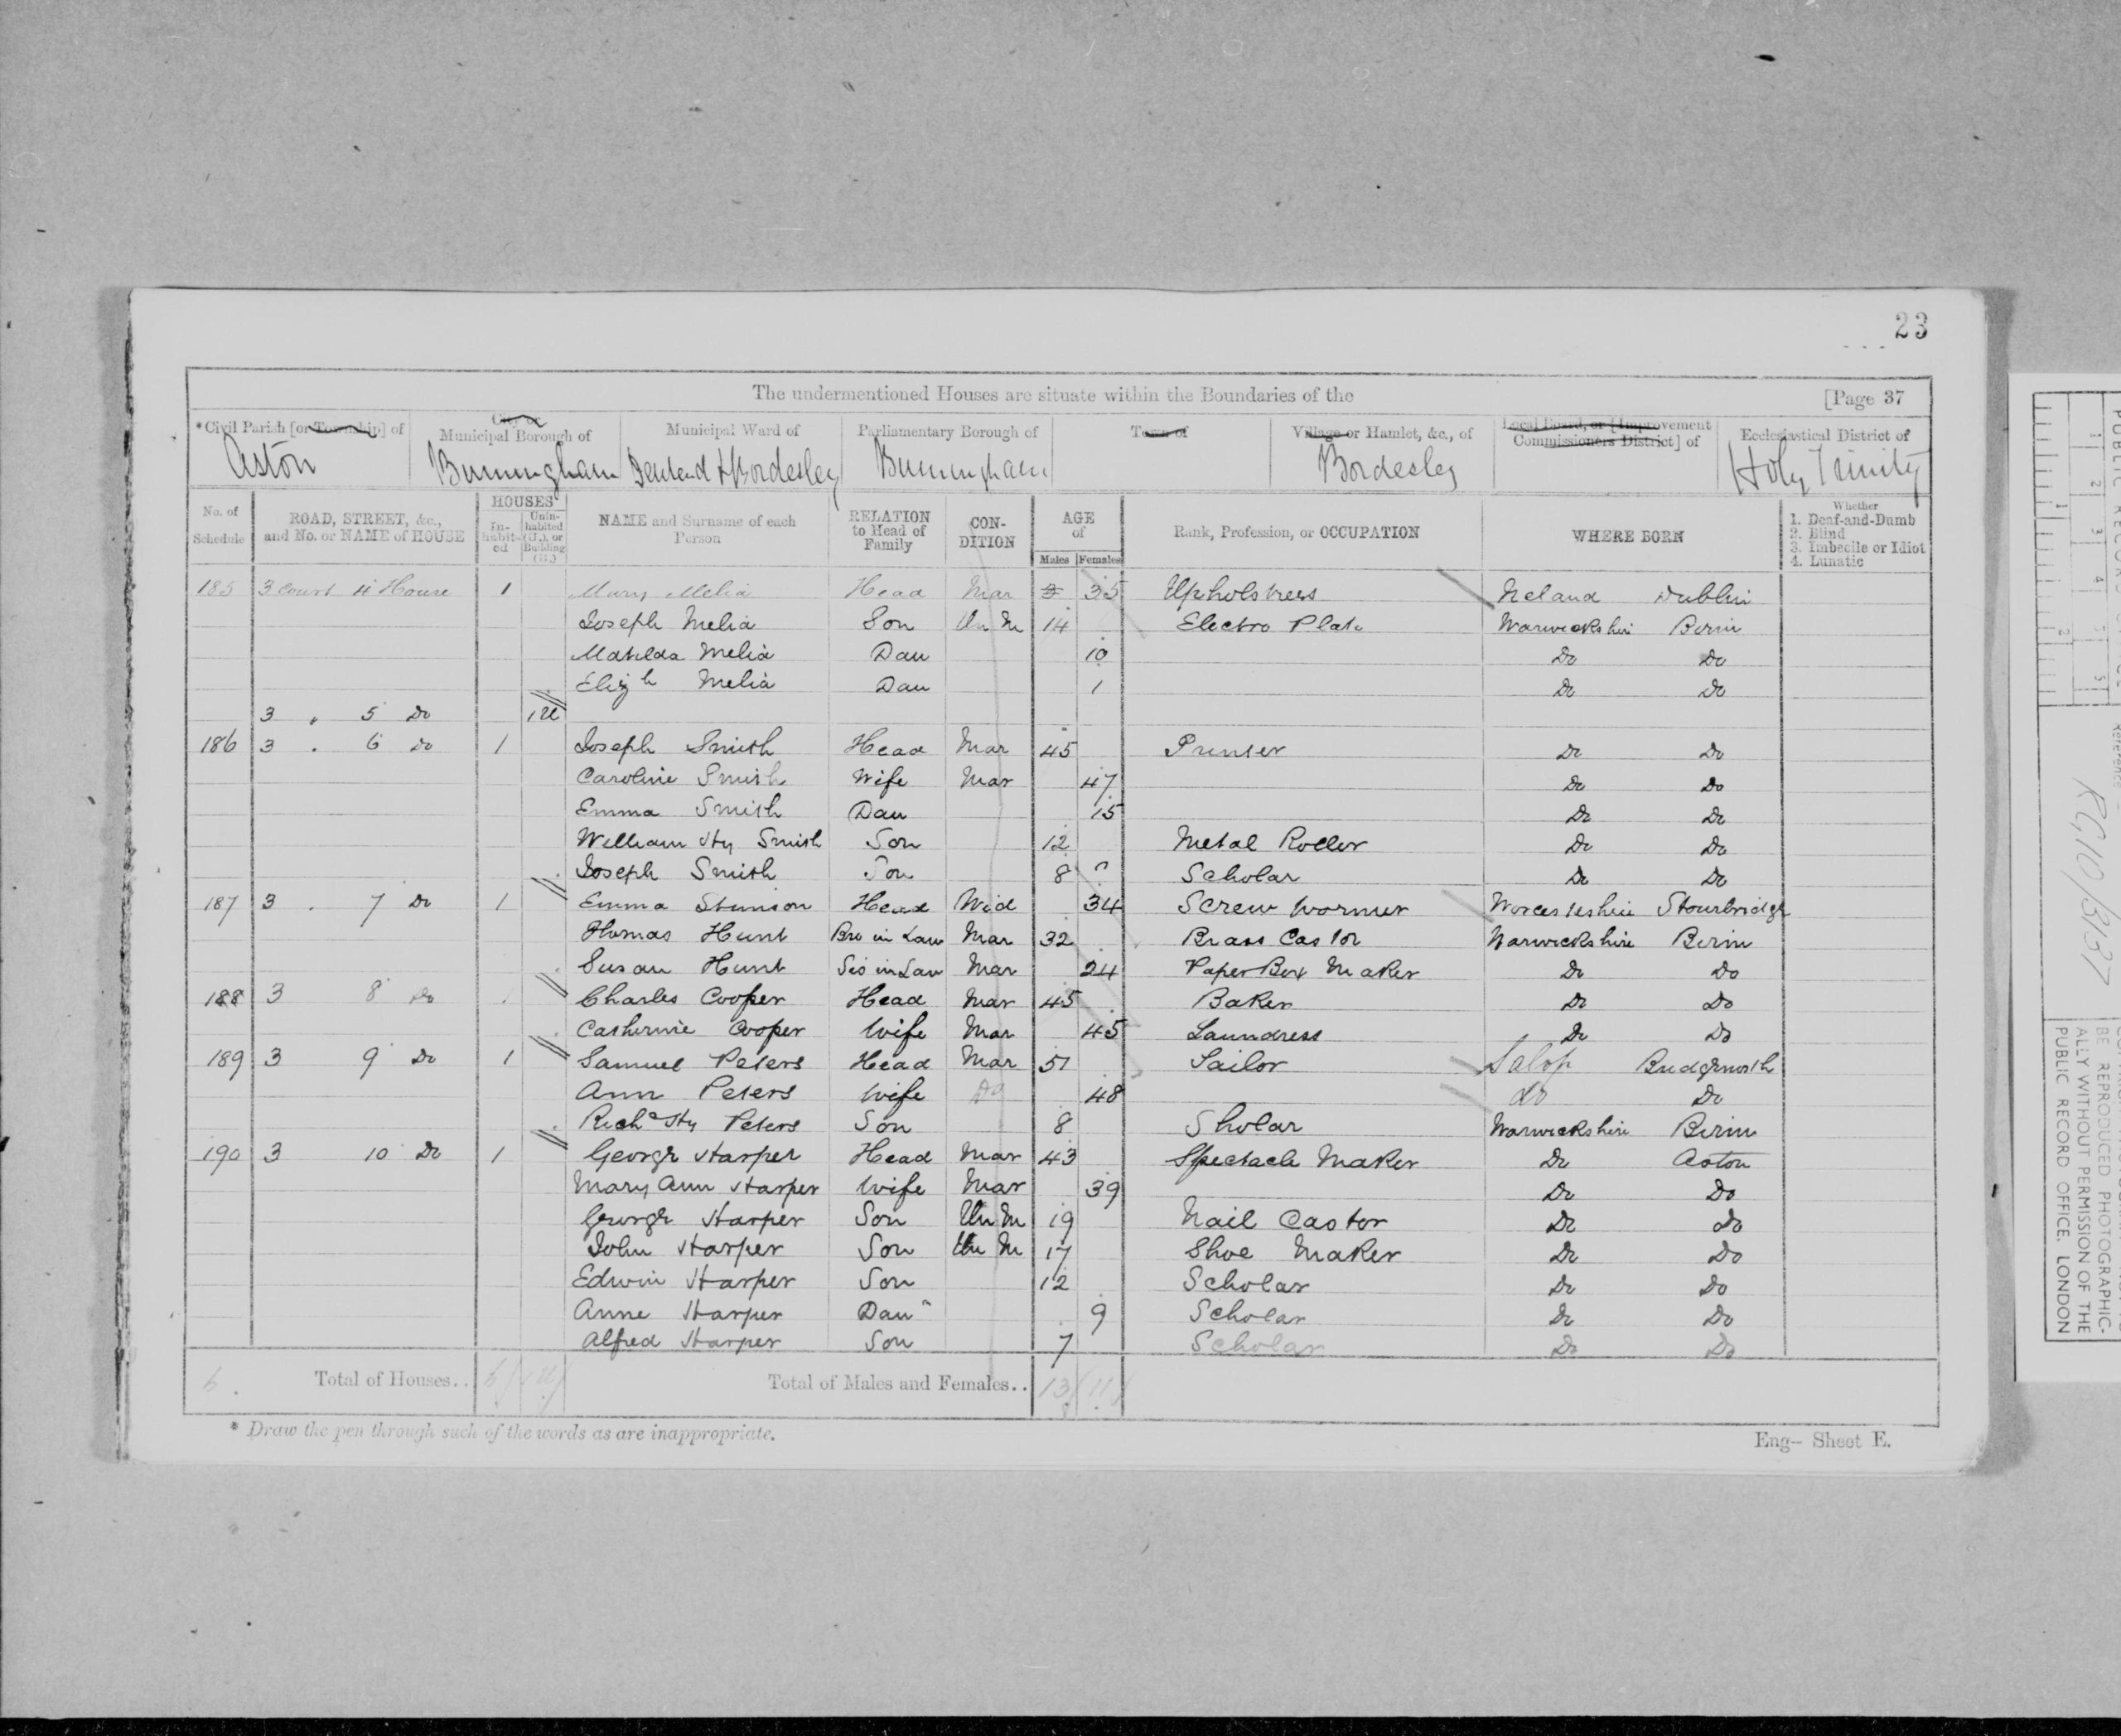 23
The undermentioned Houses are situate within the Boundaries of the [Page 37
*Civil Parish [or Township] of City or Municipal Borough of Municipal Ward of Parliamentary Borough of Town of Village or Hamlet, &c., of Local Board, or [Improvement Commissioners District] of Ecclesiastical District of
Aston Birmingham Deritend & Bordesley Birmingham Bordesley Holy Trinity
No. of Schedule ROAD, STREET, &c., and No. or NAME of HOUSE HOUSES In-habit-ed Unin-habited (U.), or Building (B.) NAME and Surname of each Person RELATION to Head of Family CON-DITION AGE of Males Females Rank, Profession, or OCCUPATION WHERE BORN Whether 1. Deaf-and-Dumb 2. Blind 3. Imbecile or Idiot 4. Lunatic
185 3 Court 4 House 1 Mary Melia Head Mar 35 Upholstress Ireland Dublin
Joseph Melia Son Un M 14 Electro Plate Warwickshire Birm
Matilda Melia Dau 10 Do Do
Elizh Melia Dau 1 Do Do
3 " 5 Do 1U
186 3 " 6 Do 1 Joseph Smith Head Mar 45 Printer Do Do
Caroline Smith Wife Mar 47 Do Do
Emma Smith Dau 15 Do Do
William Hy Smith Son 12 Metal Roller Do Do
Joseph Smith Son 8 Scholar Do Do
187 3 " 7 Do 1 Emma Stinson Head Wid 34 Screw Wormer Worcestershire Stourbridge
Thomas Hunt Bro in Law Mar 32 Brass Castor Warwickshire Birm
Susan Hunt Sis in Law Mar 24 Paper Box Maker Do Do
188 3 8 Do 1 Charles Cooper Head Mar 45 Baker Do Do
Catherine Cooper Wife Mar 45 Laundress Do Do
189 3 9 Do 1 Samuel Peters Head Mar 51 Tailor Salop Bridgnorth
Ann Peters Wife Do 48 do Do
Richd Hy Peters Son 8 Sholar Warwickshire Birm
190 3 10 Do 1 George Harper Head Mar 43 Spectacle Maker Do Aston
Mary Ann Harper Wife Mar 39 Do Do
George Harper Son Un M 19 Nail Castor Do do
John Harper Son Un M 17 Shoe Maker Do Do
Edwin Harper Son 12 Scholar Do Do
Anne Harper Dau 9 Scholar Do Do
Alfred Harper Son 7 Scholar Do Do
6 Total of Houses.. 6 1U Total of Males and Females.. 13 11
* Draw the pen through such of the words as are inappropriate. Eng- Sheet E.
RG 10/3137
BE REPRODUCED PHOTOGRAPHIC-
ALLY WITHOUT PERMISSION OF THE
PUBLIC RECORD OFFICE, LONDON